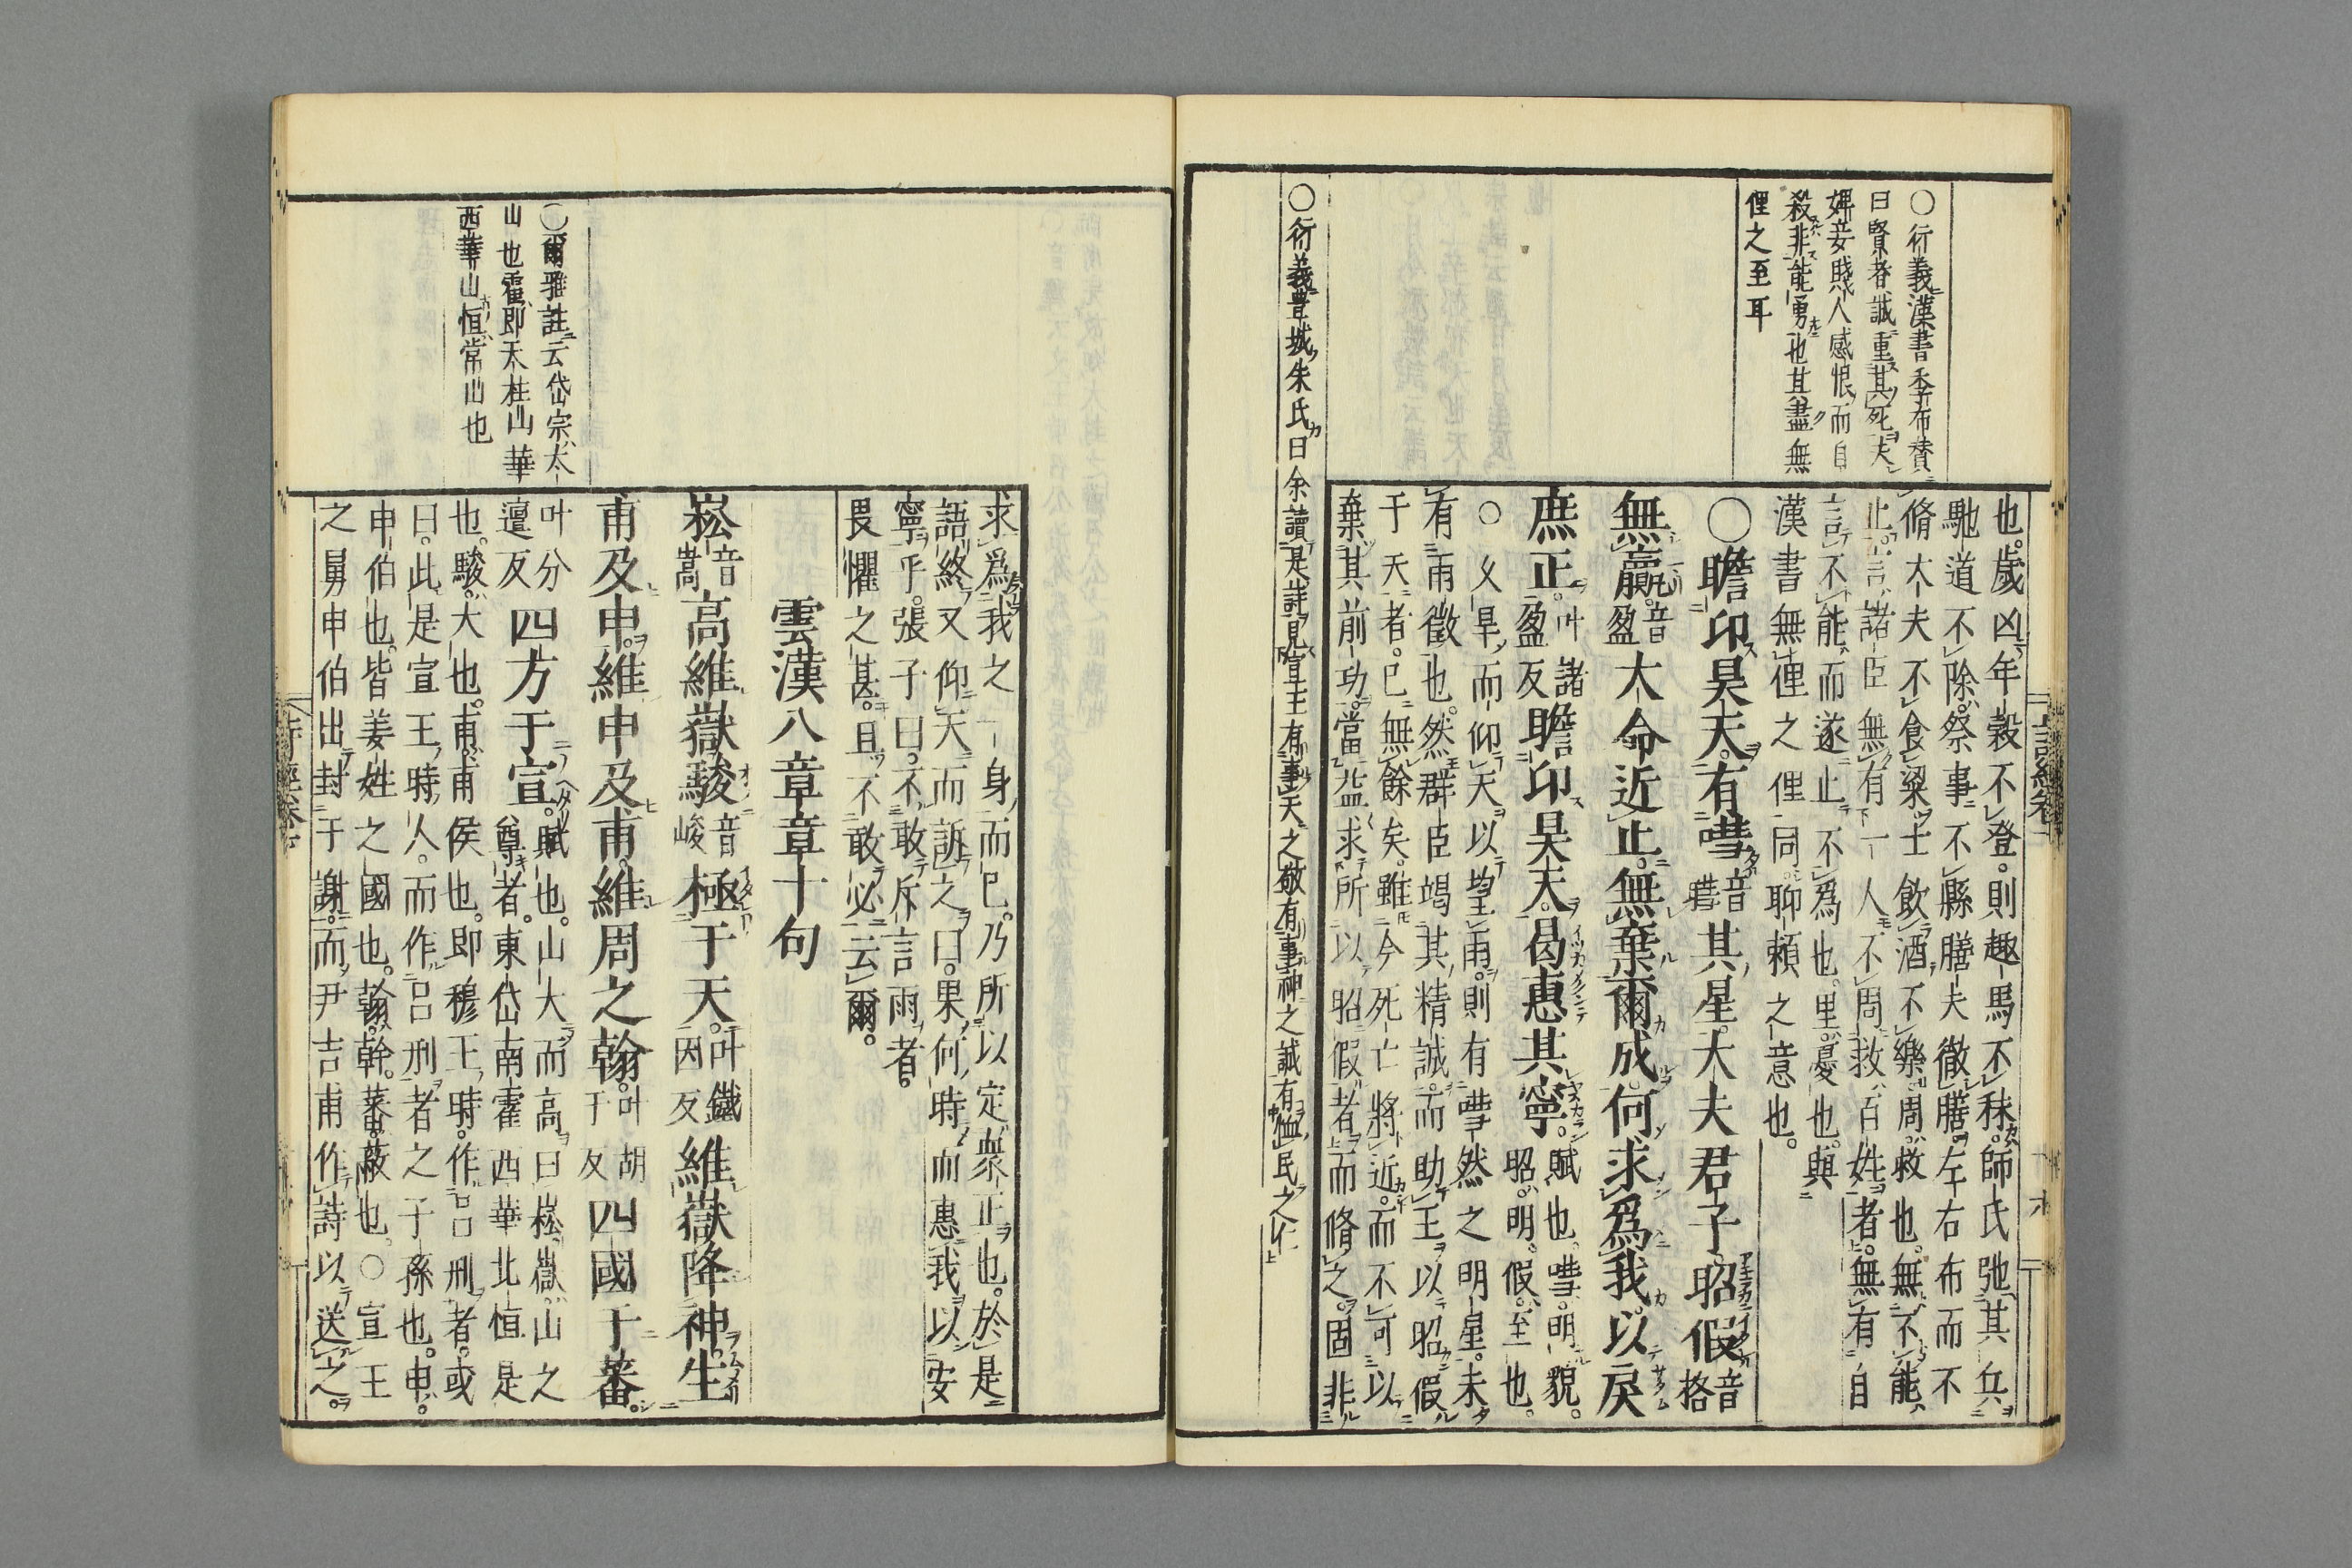 ○衍義漢書季布賛
曰賢者誠重其死夫
婢妾賤人感恨而自
殺非能勇也其盡無
俚之至耳
○衍義豊城朱氏曰余讀是詩見宣王有事天之敬有事神之誠有恤民之仁
也。歲凶。年穀不登。則趣馬不秣。師氏弛其兵
馳道不除。祭事不縣。膳夫徹膳。左右布而不
脩。大夫不食粱。士飲酒不樂。周。救也。無不能
止。言。諸臣無有一人不周救百姓者。無有自
言不能而遂止不爲也。里。憂也。與
漢書無俚之俚同。聊頼之意也。
○瞻卬昊天。有嘒音嘒其星。大夫君子。昭假音格
無贏。音盈大命近止。無棄爾成。何求爲我。以戾
庶正。叶諸盈反瞻卬昊天。曷惠其寧。賦也。嘒。明貌。昭。明。假。至也。
○久旱而仰天以望雨。則有嘒然之明星。未
有雨徵也。然群臣竭其精誠。而助王以昭假
于天者。已無餘矣。雖今死亡將近。而不可以
棄其前功。當益求所以昭假者而脩之。固非
求爲我之一身而已。乃所以定衆正也。於是
語終又仰天而訴之曰。果何時而惠我以安
寧乎。張子曰。不敢斥言雨者。
畏懼之甚。且不敢必云爾。
雲漢八章章十句
崧音嵩高維嶽。駿音峻極于天。叶鐵因反維嶽降神。生
甫及申。維申及甫。維周之翰。叶胡干反四國于蕃。
叶分邅反四方于宣。賦也。山大而高曰崧。嶽。山之尊者。東岱南霍西華北恒是
也。駿。大也。甫。甫侯也。即穆王時。作呂刑者。或
曰。此是宣王時人。而作呂刑者之子孫也。申。
申伯也。皆姜姓之國也。翰。幹。蕃。蔽也。○宣王
之舅申伯出封于謝。而尹吉甫作詩以送之。
○爾雅註云岱宗太
山也霍即天柱山華
西華山恒常山也